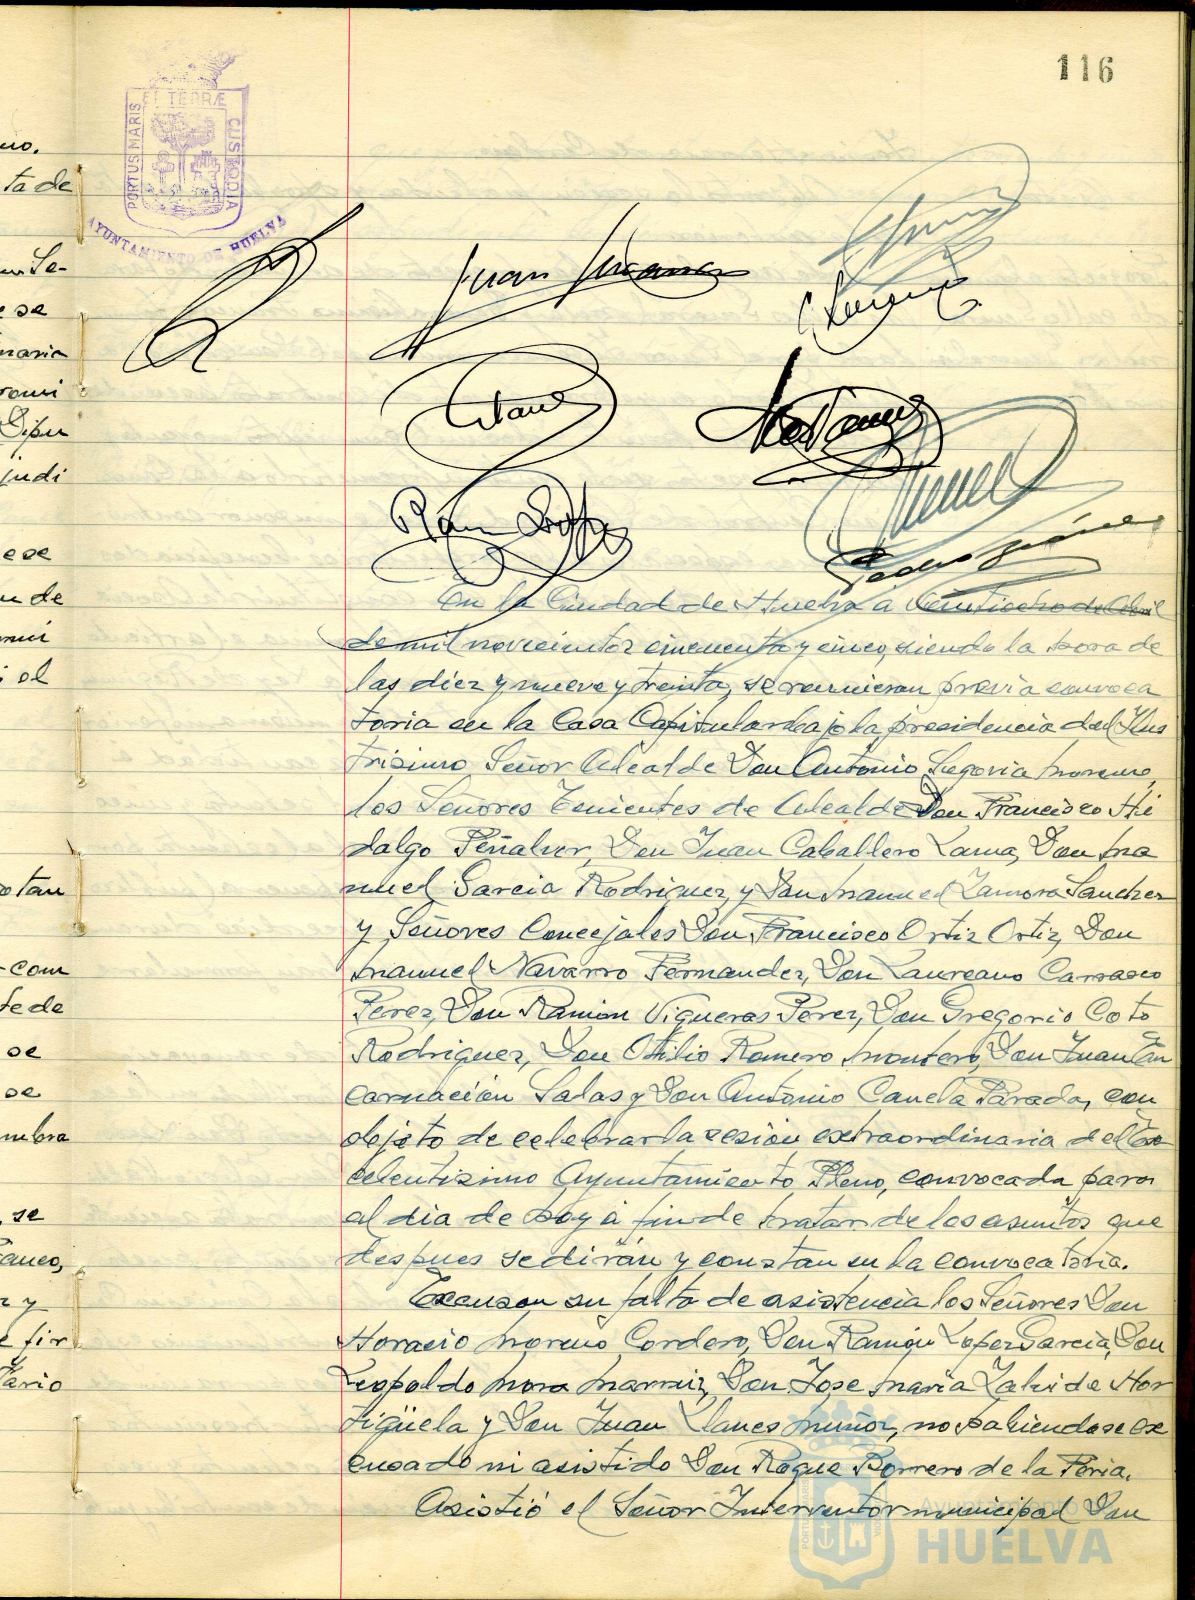 116
PORTUS MARIS ET TERRÆ CUSTODIA
AYUNTAMIENTO DE HUELVA
uo.
ta de
Se-
e se
naria
Dipu
judi
e se
u de
el
tan
com
fe de
se
se
mbra
se
anco,
z y
e fir
tario
Juan
Ramon Lopez
Pedro
En la Ciudad de Huelva a veintiocho de Abril
de mil novecientos cincuenta y cinco, siendo la hora de
las diez y nueve y treinta, se reunieron previa convoca
toria en la Casa Capitular bajo la presidencia del Ilus
trisimo Señor Alcalde Don Antonio Segovia Moreno,
los Señores Tenientes de Alcalde Don Francisco Hi
dalgo Peñalver, Don Juan Caballero Lama, Don Ma
nuel Garcia Rodriguez, y Don Manuel Zamora Sanchez
y Señores Concejales Don Francisco Ortiz Ortiz, Don
Manuel Navarro Fernandez, Don Laureano Carrasco
Perez, Don Ramon Vigueras Perez, Don Gregorio Coto
Rodriguez, Don Otilio Romero Montero, Don Juan En
carnación Salas y Don Antonio Canela Parada, con
objeto de celebrar la sesión extraordinaria del Ex
celentisimo Ayuntamiento Pleno, convocada para
al dia de hoy a fin de tratar de los asuntos que
despues se dirán y constan en la convocatoria.
Excusan su falta de asistencia los Señores Don
Horacio Moreno Cordero, Don Ramón Lopez Garcia, Don
Leopoldo Mora Don Jose Maria Zalvide Hor
tigüela y Don Juan Llanes Muñoz, no habiendose ex
cusado ni asistido Don Roque Borrero de la Feria.
Asistió el Señor Interventor municipal Don
Ayuntamiento
HUELVA